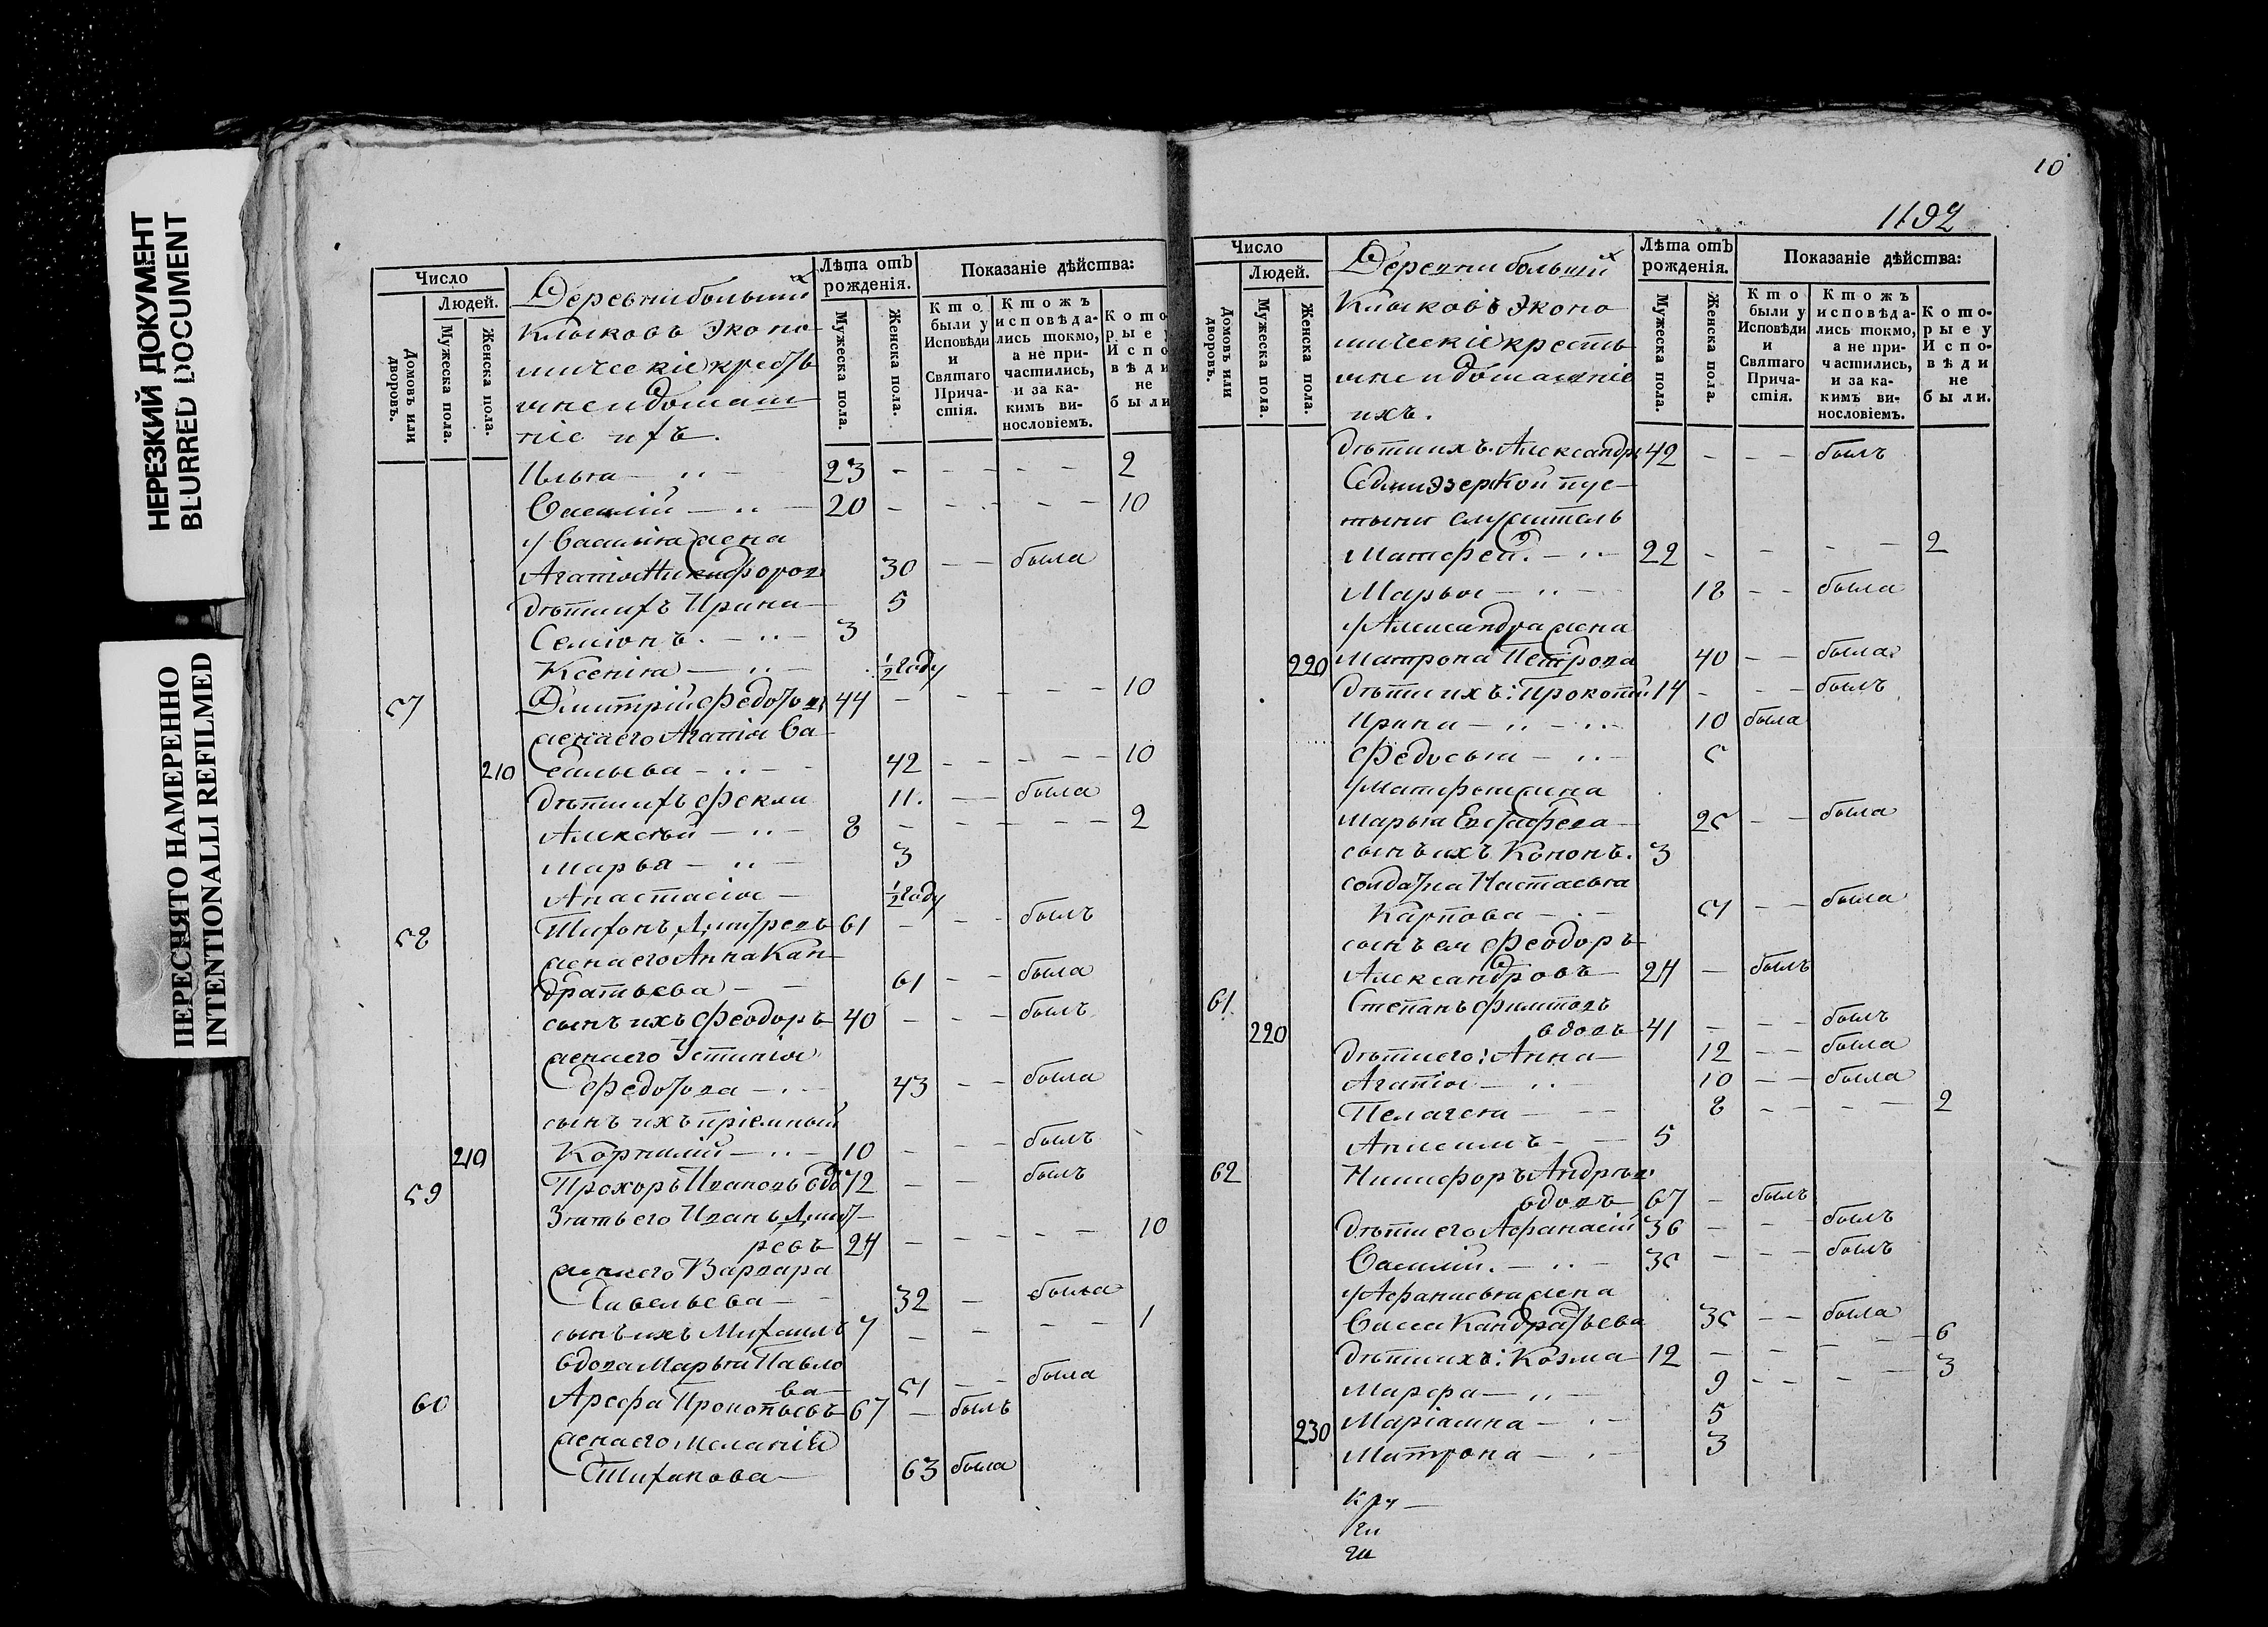 НЕРЕЗКИЙ ДОКУМЕНТ
BLURRED DOCUMENT
ПЕРЕСНЯТО НАМЕРЕННО
INTENTIONALLI REFILMED
Число
Людей.
Домовъ или дворовъ.
Мужеска пола.
Женска пола.
Деревни большихъ
Клыковъ Эконо
мическiе кресть
яне и домаш
нiе ихъ.
Лѣта отъ рожденія.
Мужеска пола.
Женска пола.
Показаніе дѣйства:
Кто были у Исповѣди и Святаго Причастія.
Ктожъ исповѣдались токмо, а не причастились, и за какимъ винословіемъ.
Которые у Исповѣди не были
Илья 23 2
Василій 20 10
у Василья жена
Агапія Никифорова 30 была
дѣти ихъ Ирина 5
Семіонъ 3
Ксенія 1/2 году
57 Дмитрій Федотовъ 44 10
жена его Агапія Ва
210 сильева 42 10
дѣти ихъ Фекла 11. была
Алексѣй 8 2
Марья 3
Анастасія 1/2 году
58 Тихонъ Димитревъ 61 былъ
жена его Анна Кан
дратьева 61 была
сынъ ихъ Феодоръ 40 былъ
жена его Устинія
Федотова 43 была
сынъ ихъ пріемный
210 Корнилій 10 былъ
59 Прохоръ Ивановъ вдо 72 былъ
Зять его Иванъ Димит
ревъ 24 10
жена его Варвара
Савельева 32 была
сынъ ихъ Михаилъ 7 1
вдова Марья Павло
ва 51 была
60 Арефа Прокопьевъ 67 былъ
жена его Меланія
Тихонова 63 была
10
1192
Число
Людей.
Домовъ или дворовъ.
Мужеска пола.
Женска пола.
Деревни большихъ
Клыковъ Эконо
мическiе кресть
яне и домашнiе
ихъ.
Лѣта отъ рожденія.
Мужеска пола.
Женска пола.
Показаніе дѣйства:
Кто были у Исповѣди и Святаго Причастія.
Ктожъ исповѣдались токмо, а не причастились, и за какимъ винословіемъ.
Которые у Исповѣди не были.
дѣти ихъ Александръ 42 былъ
Седміозерной пус
тыни служитель
Матфей 22 2
Марья 18 была
у Александра жена
220 Матрона Петрова 40 была
дѣти ихъ: Прокопій 14 былъ
Ирина 10 была
Федосья 5
у Матфея жена
Марья 25 была
сынъ ихъ Кононъ. 3
солдатка Настасья
Карпова 51 была
сынъ ея Феодоръ
Александровъ 24 былъ
61 Степанъ Филиповъ
220 вдовъ 41 былъ
дѣти его: Анна 12 была
Агапія 10 была
Пелагея 8 2
Анисимъ 5
62 Никифоръ Андреевъ
вдовъ 67 былъ
дѣти его Афанасій 36 былъ
Василій. 35 былъ
у Афанасья жена
Васса Кандратьева 35 была
дѣти ихъ: Козма 12 6
Марфа 9 3
230 Маріамна 5
Матрона 3